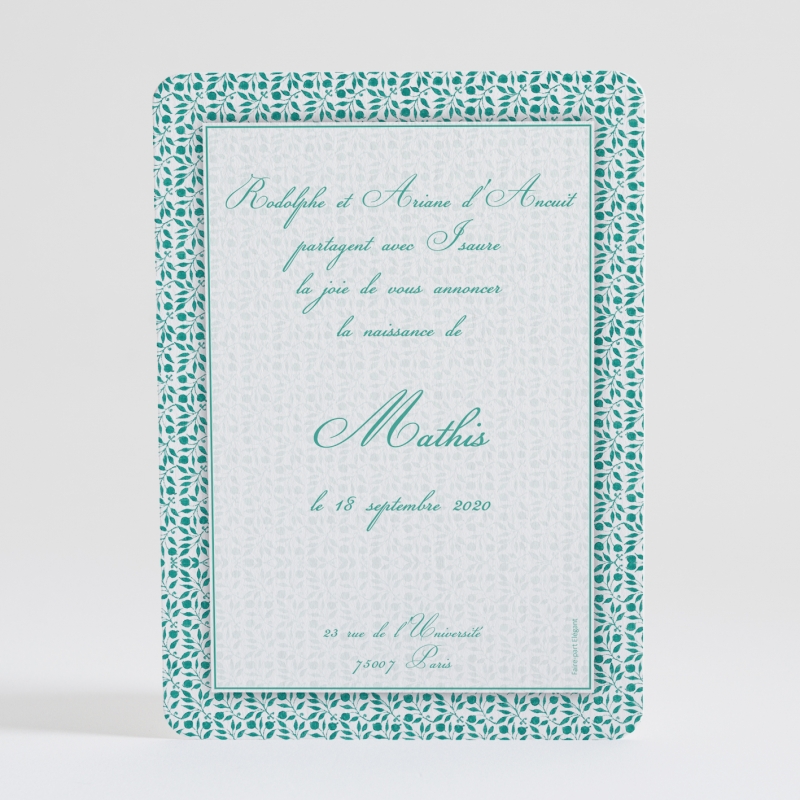 Rodolphe et Ariane d'Ancuit
partagent avec Isaure
la joie de vous annoncer
la naissance de
Mathis
le 18 septembre 2020
23 rue de l'Université
75007 Paris
Faire-part Elégant